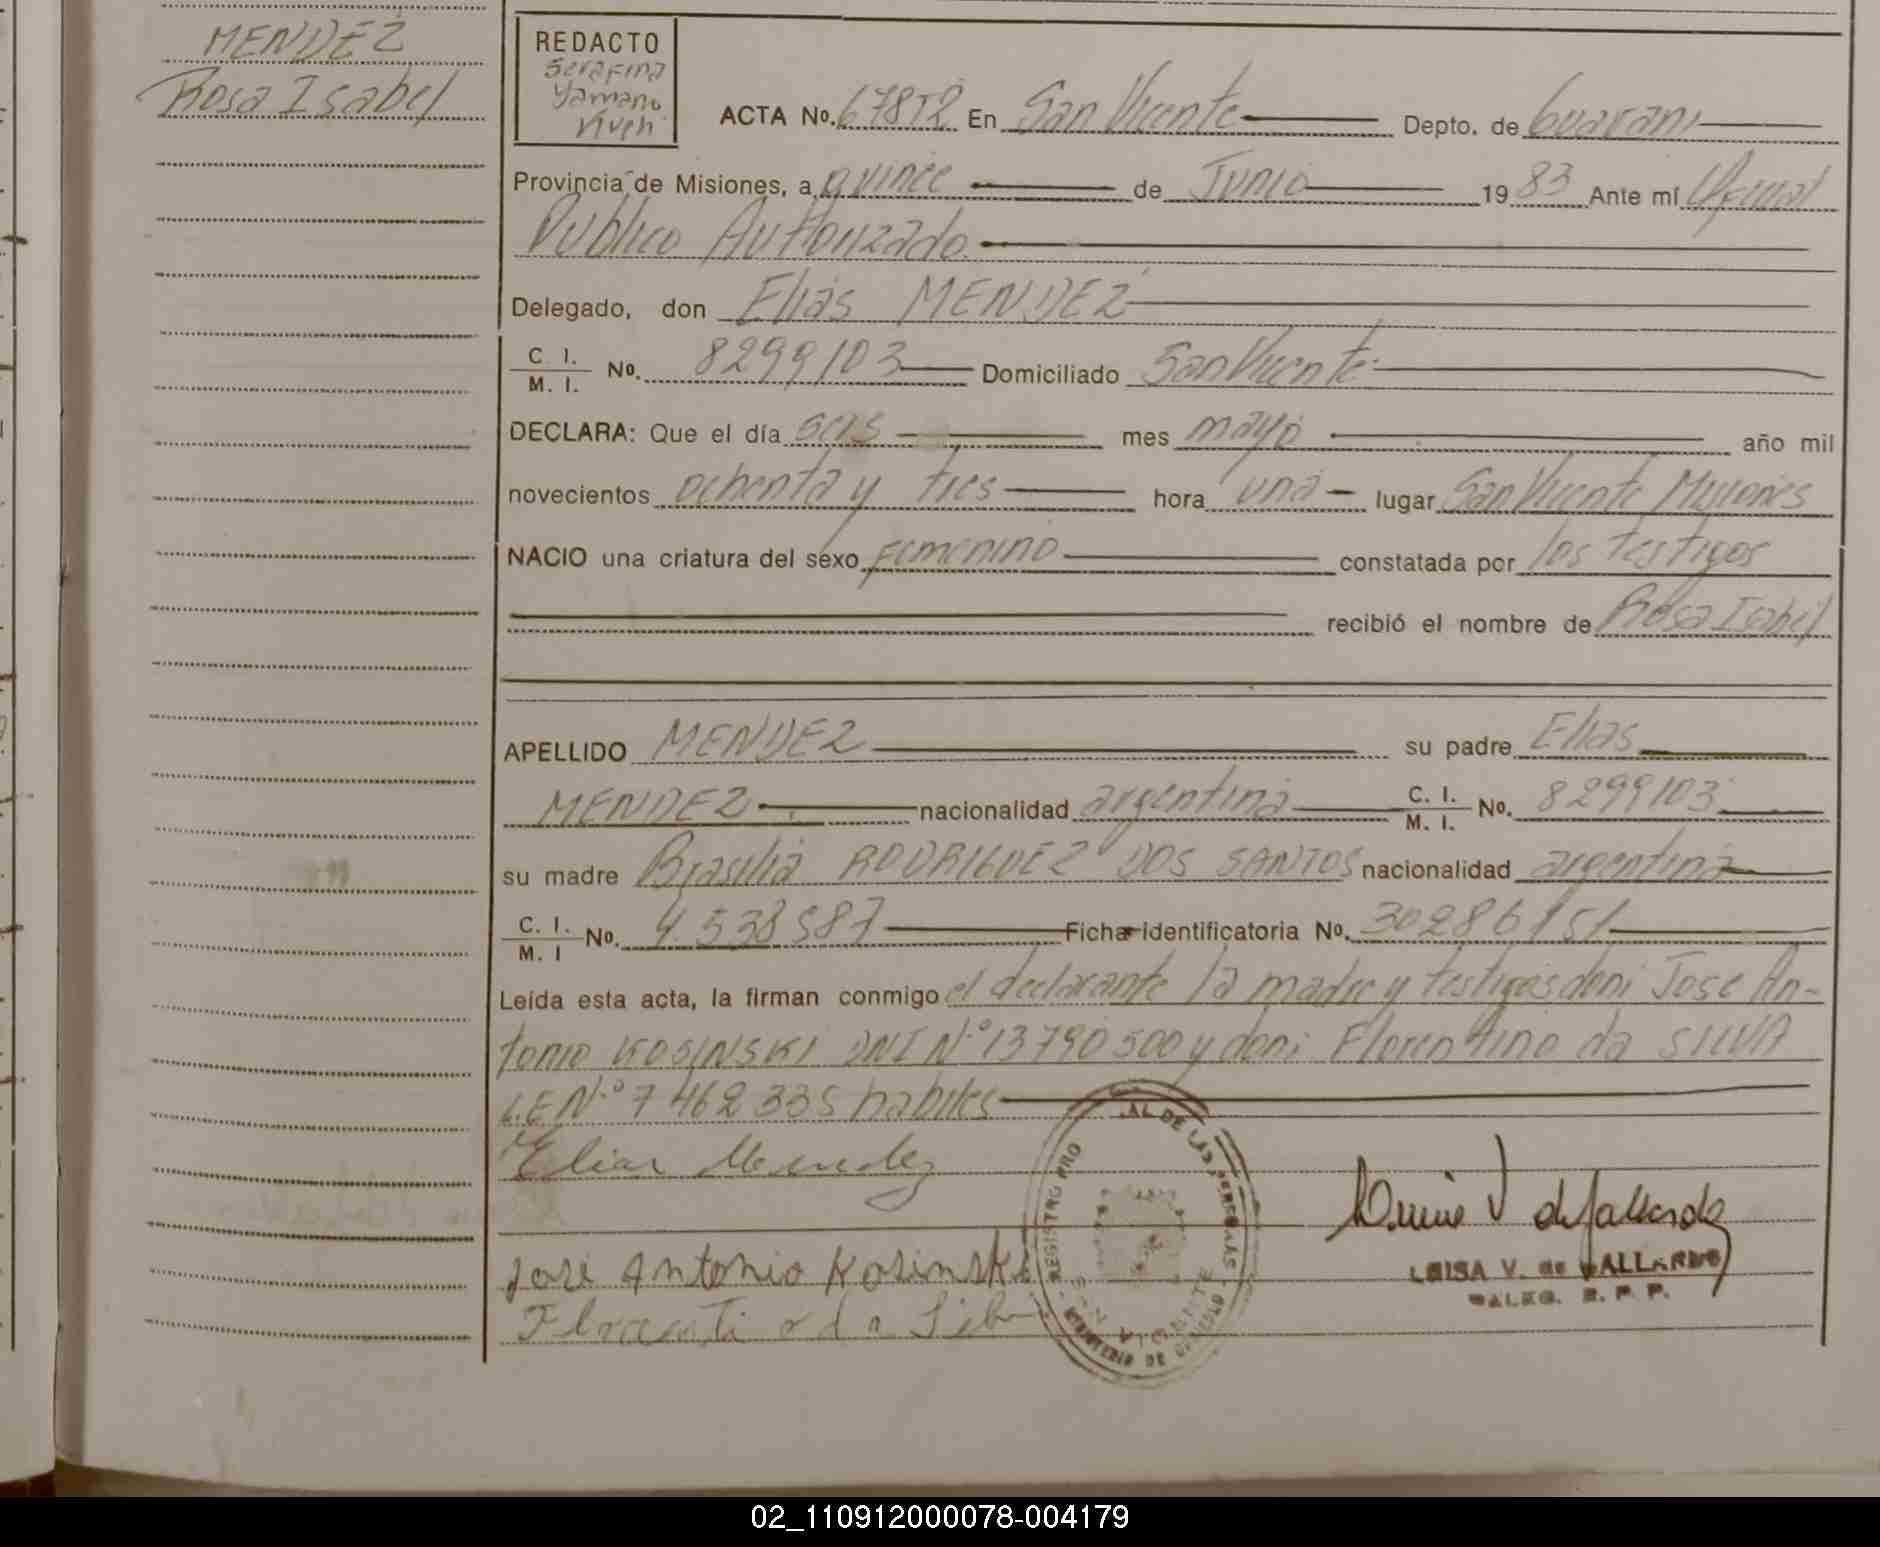 MENDEZ
Rosa Isabel
REDACTO
Serafina
Yamano
ACTA No. 678T2 En San Vicente Depto. de Guarani
Provincia de Misiones, a quince de Junio 1983 Ante mí Oficial
Publico Autorizado
Delegado, don Elias MENDEZ
C. I. / M. I. No. 8299103 Domiciliado San Vicente
DECLARA: Que el día seis mes mayo año mil
novecientos ochenta y tres hora una lugar San Vicente Misiones
NACIO una criatura del sexo femenino constatada por los testigos
recibió el nombre de Rosa Isabel
APELLIDO MENDEZ su padre Elias
MENDEZ nacionalidad argentina C. I. / M. I. No. 8299103
su madre Brasilia RODRIGUEZ DOS SANTOS nacionalidad argentina
C. I. / M. I No. 4.538587 Ficha identificatoria No. 30286151
Leída esta acta, la firman conmigo el declarante la madre y testigos don: Jose An-
tonio KOSINSKI DNI Nº 13790500 y don: Florentino da SILVA
L.E Nº 7462335 habiles
Elias Mendez
José Antonio Kosinski
Florenti o da Silv
REGISTRO PRO AL DE LAS PERSONAS
SAN VICENTE
MINISTERIO DE GOBIERNO
LUISA V. de GALLARDO
DALEG. R. P. P.
02_110912000078-004179